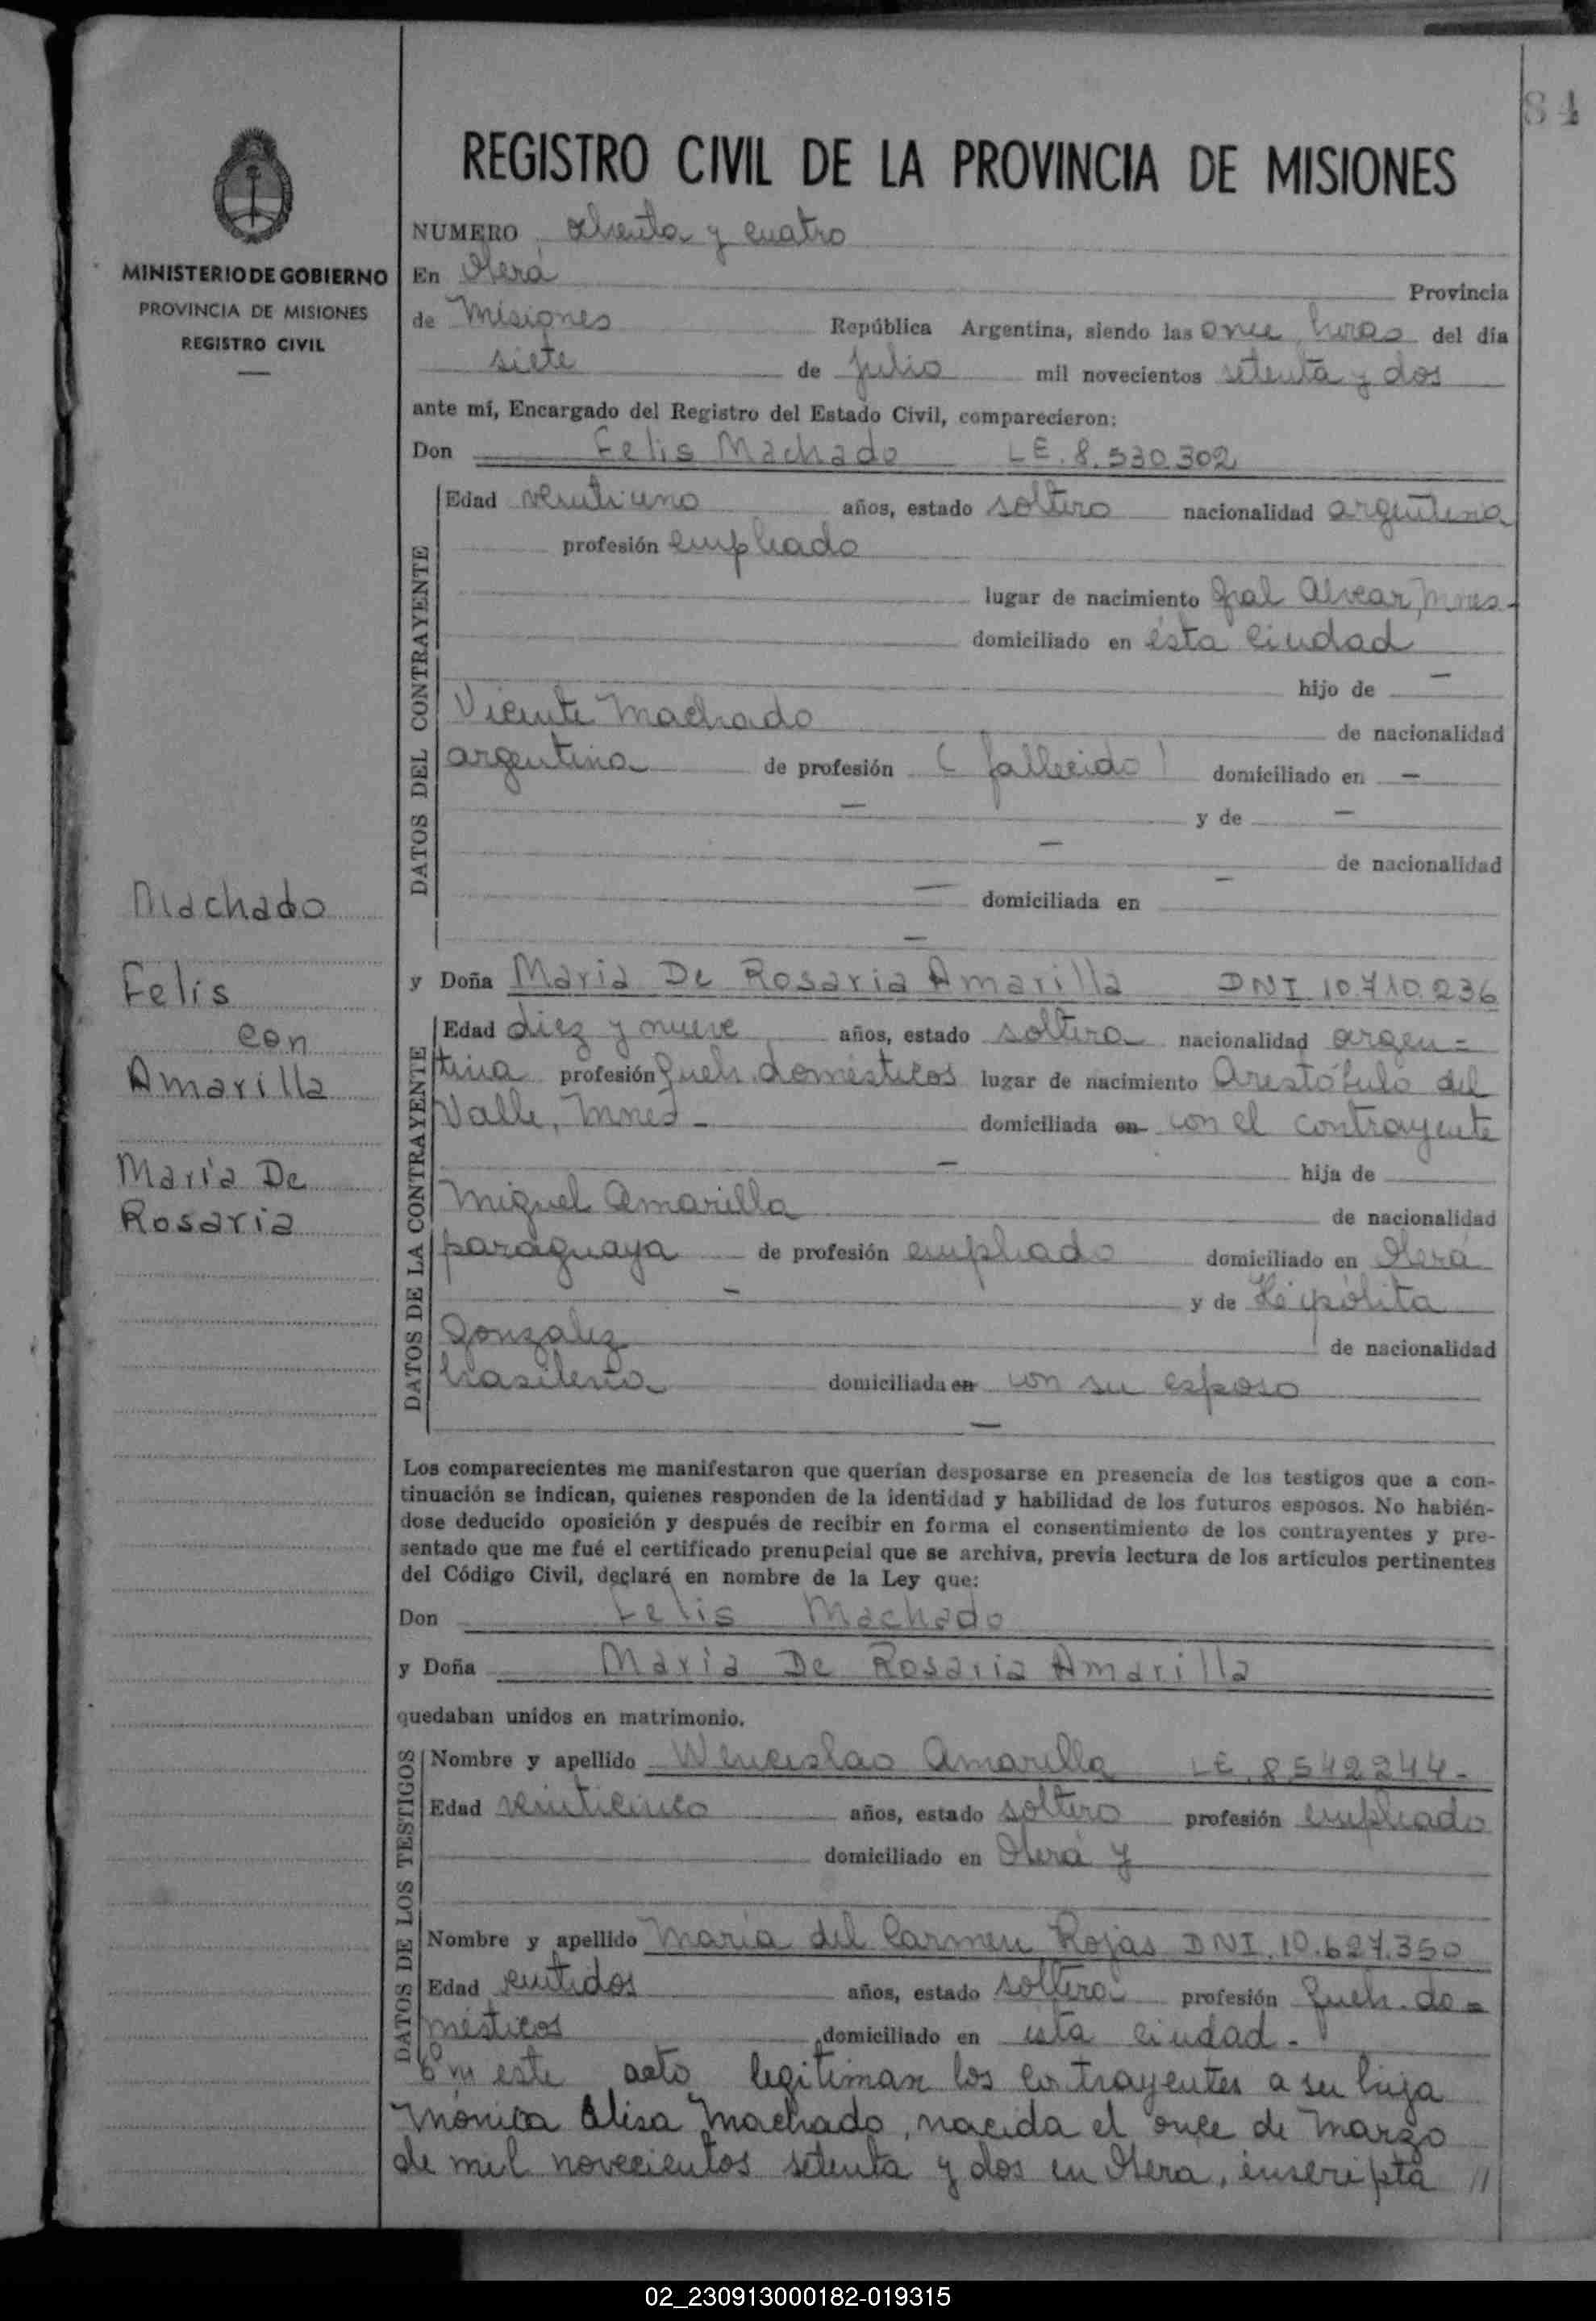 84
REGISTRO CIVIL DE LA PROVINCIA DE MISIONES
MINISTERIO DE GOBIERNO
PROVINCIA DE MISIONES
REGISTRO CIVIL
NUMERO ochenta y cuatro
En Oberá Provincia
de Misiones República Argentina, siendo las once horas del día
siete de julio mil novecientos setenta y dos
ante mí, Encargado del Registro del Estado Civil, comparecieron:
Don Felis Machado LE. 8.530.302
DATOS DEL CONTRAYENTE
Edad veintiuno años, estado soltero nacionalidad argentina
profesión empleado
lugar de nacimiento Gral Alvear, Mnes-
domiciliado en ésta Ciudad
hijo de —
Vicente Machado de nacionalidad
argentina de profesión (fallecido) domiciliado en —
— y de —
— de nacionalidad
— domiciliada en —
—
Machado
Felis
con
Amarilla
María De
Rosaria
y Doña María De Rosaria Amarilla DNI 10.710.236
DATOS DE LA CONTRAYENTE
Edad diez y nueve años, estado soltera nacionalidad argen=
tina profesión Queh. domésticos lugar de nacimiento Arestóbulo del
Valle, Mnes- domiciliada en con el contrayente
— hija de
Miguel Amarilla de nacionalidad
paraguaya de profesión empleado domiciliado en Oberá
— y de Hipólita
Gonzalez de nacionalidad
brasileña domiciliada en con su esposo
—
Los comparecientes me manifestaron que querían desposarse en presencia de los testigos que a con-
tinuación se indican, quienes responden de la identidad y habilidad de los futuros esposos. No habién-
dose deducido oposición y después de recibir en forma el consentimiento de los contrayentes y pre-
sentado que me fué el certificado prenupcial que se archiva, previa lectura de los artículos pertinentes
del Código Civil, declaré en nombre de la Ley que:
Don Felis Machado
y Doña María De Rosaria Amarilla
quedaban unidos en matrimonio.
DATOS DE LOS TESTIGOS
Nombre y apellido Wenceslao Amarilla LE. 8542244-
Edad veinticinco años, estado soltero profesión empleado
domiciliado en Oberá y
Nombre y apellido María del Carmen Rojas DNI. 10.627.350
Edad ventidos años, estado soltera profesión Queh. do=
mésticos domiciliado en esta ciudad.-
En este acto legitiman los contrayentes a su hija
Mónica Elisa Machado, nacida el once de Marzo
de mil novecientos setenta y dos en Oberá, inscripta //
02_230913000182-019315